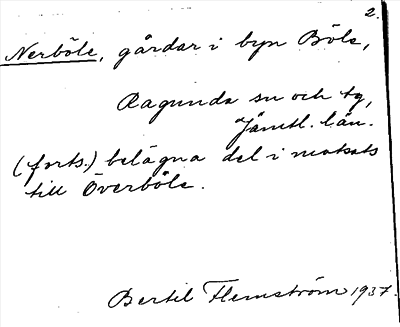 2.
Nerböle, gårdar i byn Böle,
Ragunda sn och tg,
Jämtl. län.
(forts.) belägna del i motsats
till Överböle.
Bertil Flemström 1937.